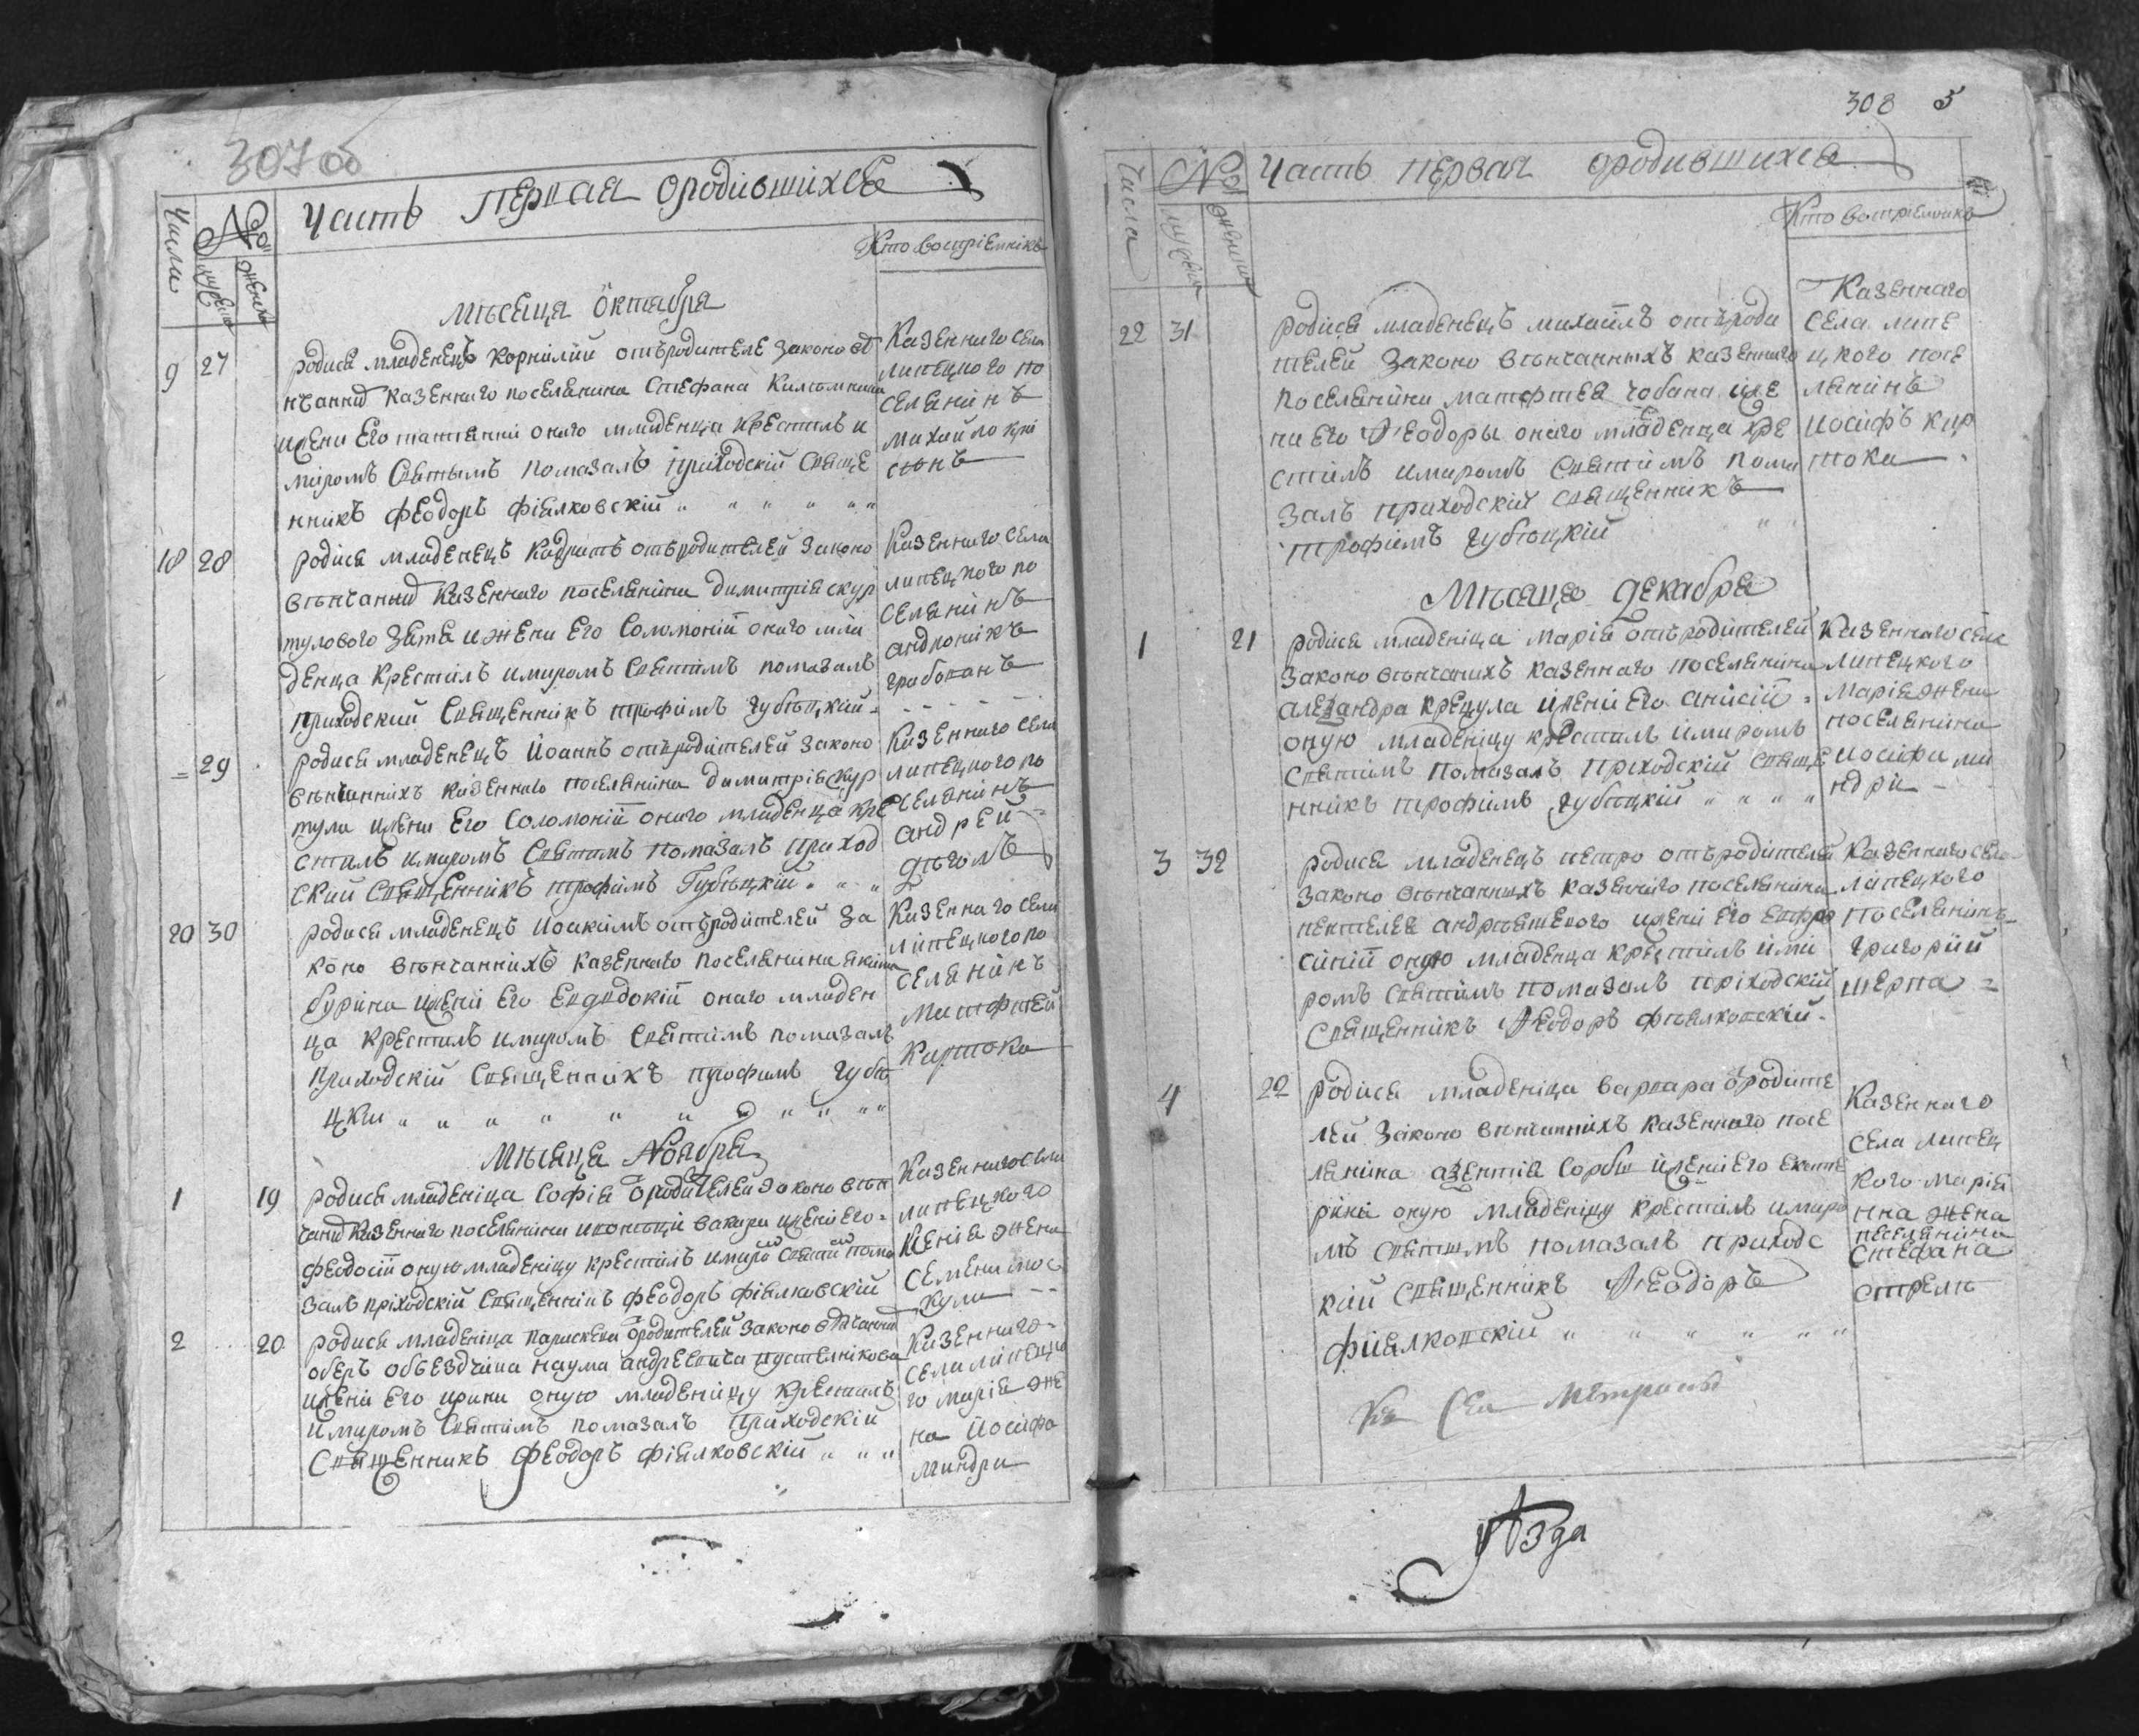 307 об
Часть первая о родившихся
Числа
№
мужеск
женск
Кто восприемникъ
Мѣсяца Октября
9 27
родися младенецъ корнилий отъ родителе законо вѣ
нчанных казеннаго поселянина Стефана
и жени его татянии онаго младенца крестилъ и
миромъ святымъ помазалъ приходский свяще
нникъ феодоръ фиялковский
Казеннаго села
липецкого по
селянинъ
михайло
18 28
родися младенецъ Кодратъ отъ родителей законо
вѣнчаных казеннаго поселянина димитрия скур
тулового зятя и жени его Соломонии онаго мла
денца крестилъ и миромъ святимъ помазалъ
приходский священникъ трофимъ губѣцкий
Казеннаго села
липецкого по
селянинъ
андроникъ
грабованъ
29
родися младенецъ Иоаннъ отъ родителей законо
вѣнчаннихъ казеннаго поселянина димитрия скур
тула и жени его Соломонии онаго младенца кре
стилъ и миромъ святимъ помазалъ приход
ский священникъ трофимъ Губѣцкий
Казеннаго села
липецкого по
селянинъ
андрей
дѣголъ
20 30
родися младенецъ Иоакимъ отъ родителей за
коно вѣнчаннихъ казеннаго поселянина якима
бурина и жени его Евдодокии онаго младен
ца крестилъ и миромъ святимъ помазалъ
приходский священникъ трофимъ губѣ
цкий
Казеннаго села
липецкого по
селянинъ
матфтей
картока
Мѣсяца Ноября
1 19
родися младеница София о родителей законо вѣн
чаных казеннаго поселянина вакари и жени его
феодосии оную младеницу крестилъ и миро святим пома
залъ приходский священникъ феодоръ фиялковский
Казеннаго села
липецкого
Ксения жена
семена мос
кула
2 20
родися младеница параскева о родителей законо вѣнчанных
оберъ обьездчика наума андреевича пустелникова
и жени его ирини оную младеницу крестилъ
и миромъ святимъ помазалъ приходский
священникъ феодоръ фиялковский
Казеннаго
села липецко
го мария же
на Иосифа
мандри
308 5
Числа
№
мужеск
женски
Часть первая о родившихся
Кто восприемникъ
22 31
родися младенецъ михаилъ отъ роди
телей законо вѣнчанныхъ казеннаго
поселянина матфтея чобана и же
ни его Феодоры онаго младенца кре
стилъ и миромъ святимъ пома
залъ приходский священникъ
трофимъ губѣцкий
Казеннаго
села липе
цкого посе
лянинъ
иосифъ кир
тока
Мѣсяца декабря
1 21
родися младеница мария отъ родителей
законо вѣнчанихъ казеннаго поселянина
алеѯандра крецула и жени его анисии
оную младеницу крестилъ и миромъ
святимъ помазалъ приходский свяще
нникъ трофимъ губѣцкий
Казеннаго села
липецкого
мария жена
поселянина
иосифа ма
ндри
3 32
родися младенецъ петро отъ родителей
законо вѣнчанныхъ казеннаго поселянина
пентелея андрѣяшевого и жени его евфро
синии оную младенца крестилъ и ми
ромъ святимъ помазалъ приходский
священникъ Феодоръ фиялковский
Казеннаго села
липецкого
поселянинъ
григорий
щерпа
4 22
родися младеница варвара о родите
лей законо вѣнчаннихъ казеннаго посе
лянина аѯентия сорбы и жени его екате
рини оную младеницу крестилъ и миро
мъ святимъ помазалъ приходс
кий священникъ Феодоръ
фиялковский
Казеннаго
села липец
кого мария
нна жена
поселянина
стефана
стреля